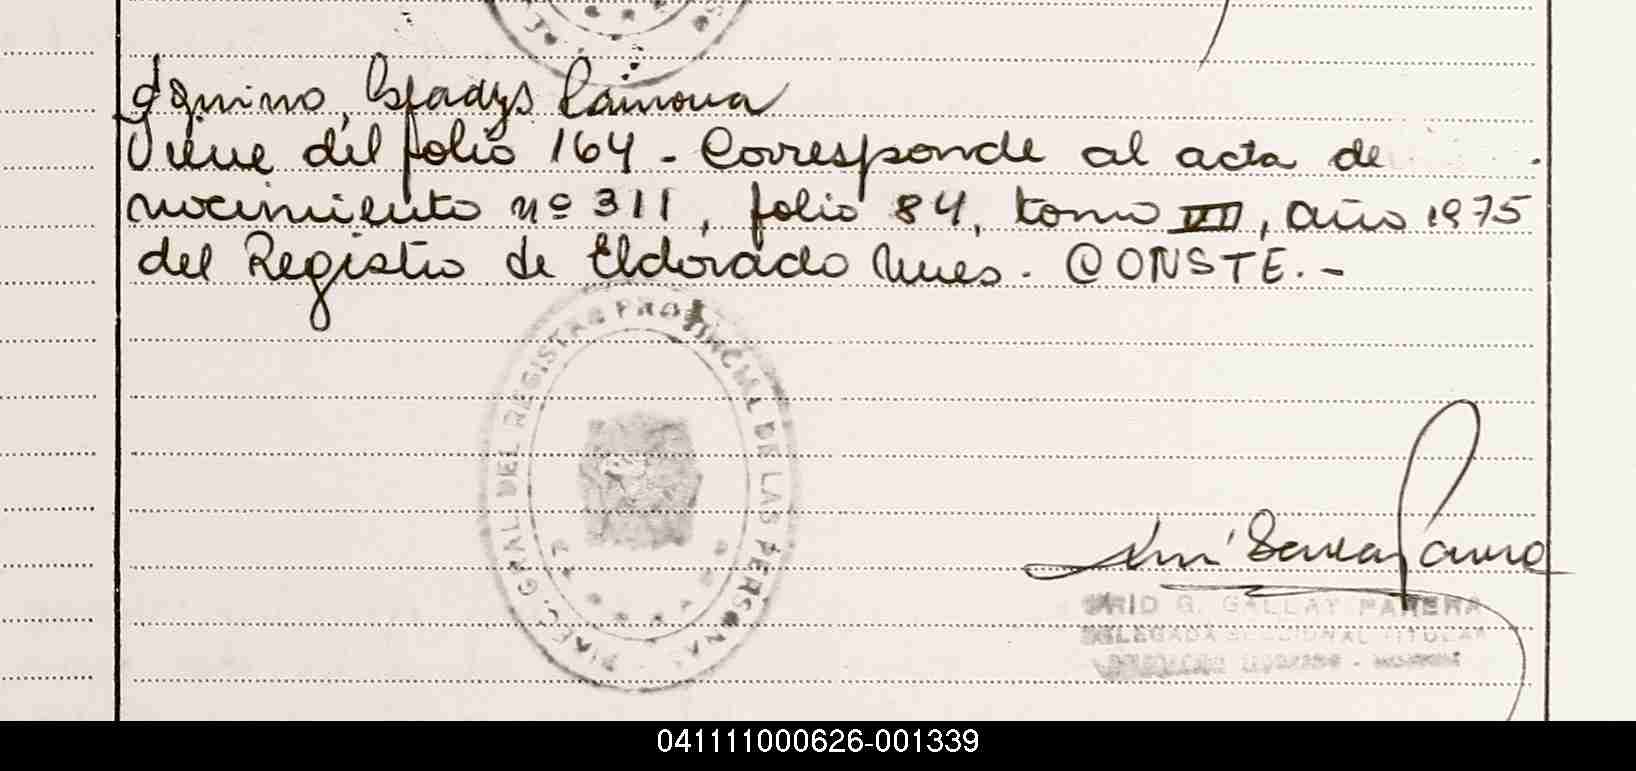 Aquino, Gladys Ramona
Viene del folio 164 - Corresponde al acta de
nacimiento nº 311, folio 84, tomo VII, año 1975
del Registro de Eldorado Mnes. CONSTE.-
DIREC. GRAL. DEL REGISTRO PROVINCIAL DE LAS PERSONAS
G. GALLAY PARERA
DELEGADA SECCIONAL TITULAR
041111000626-001339